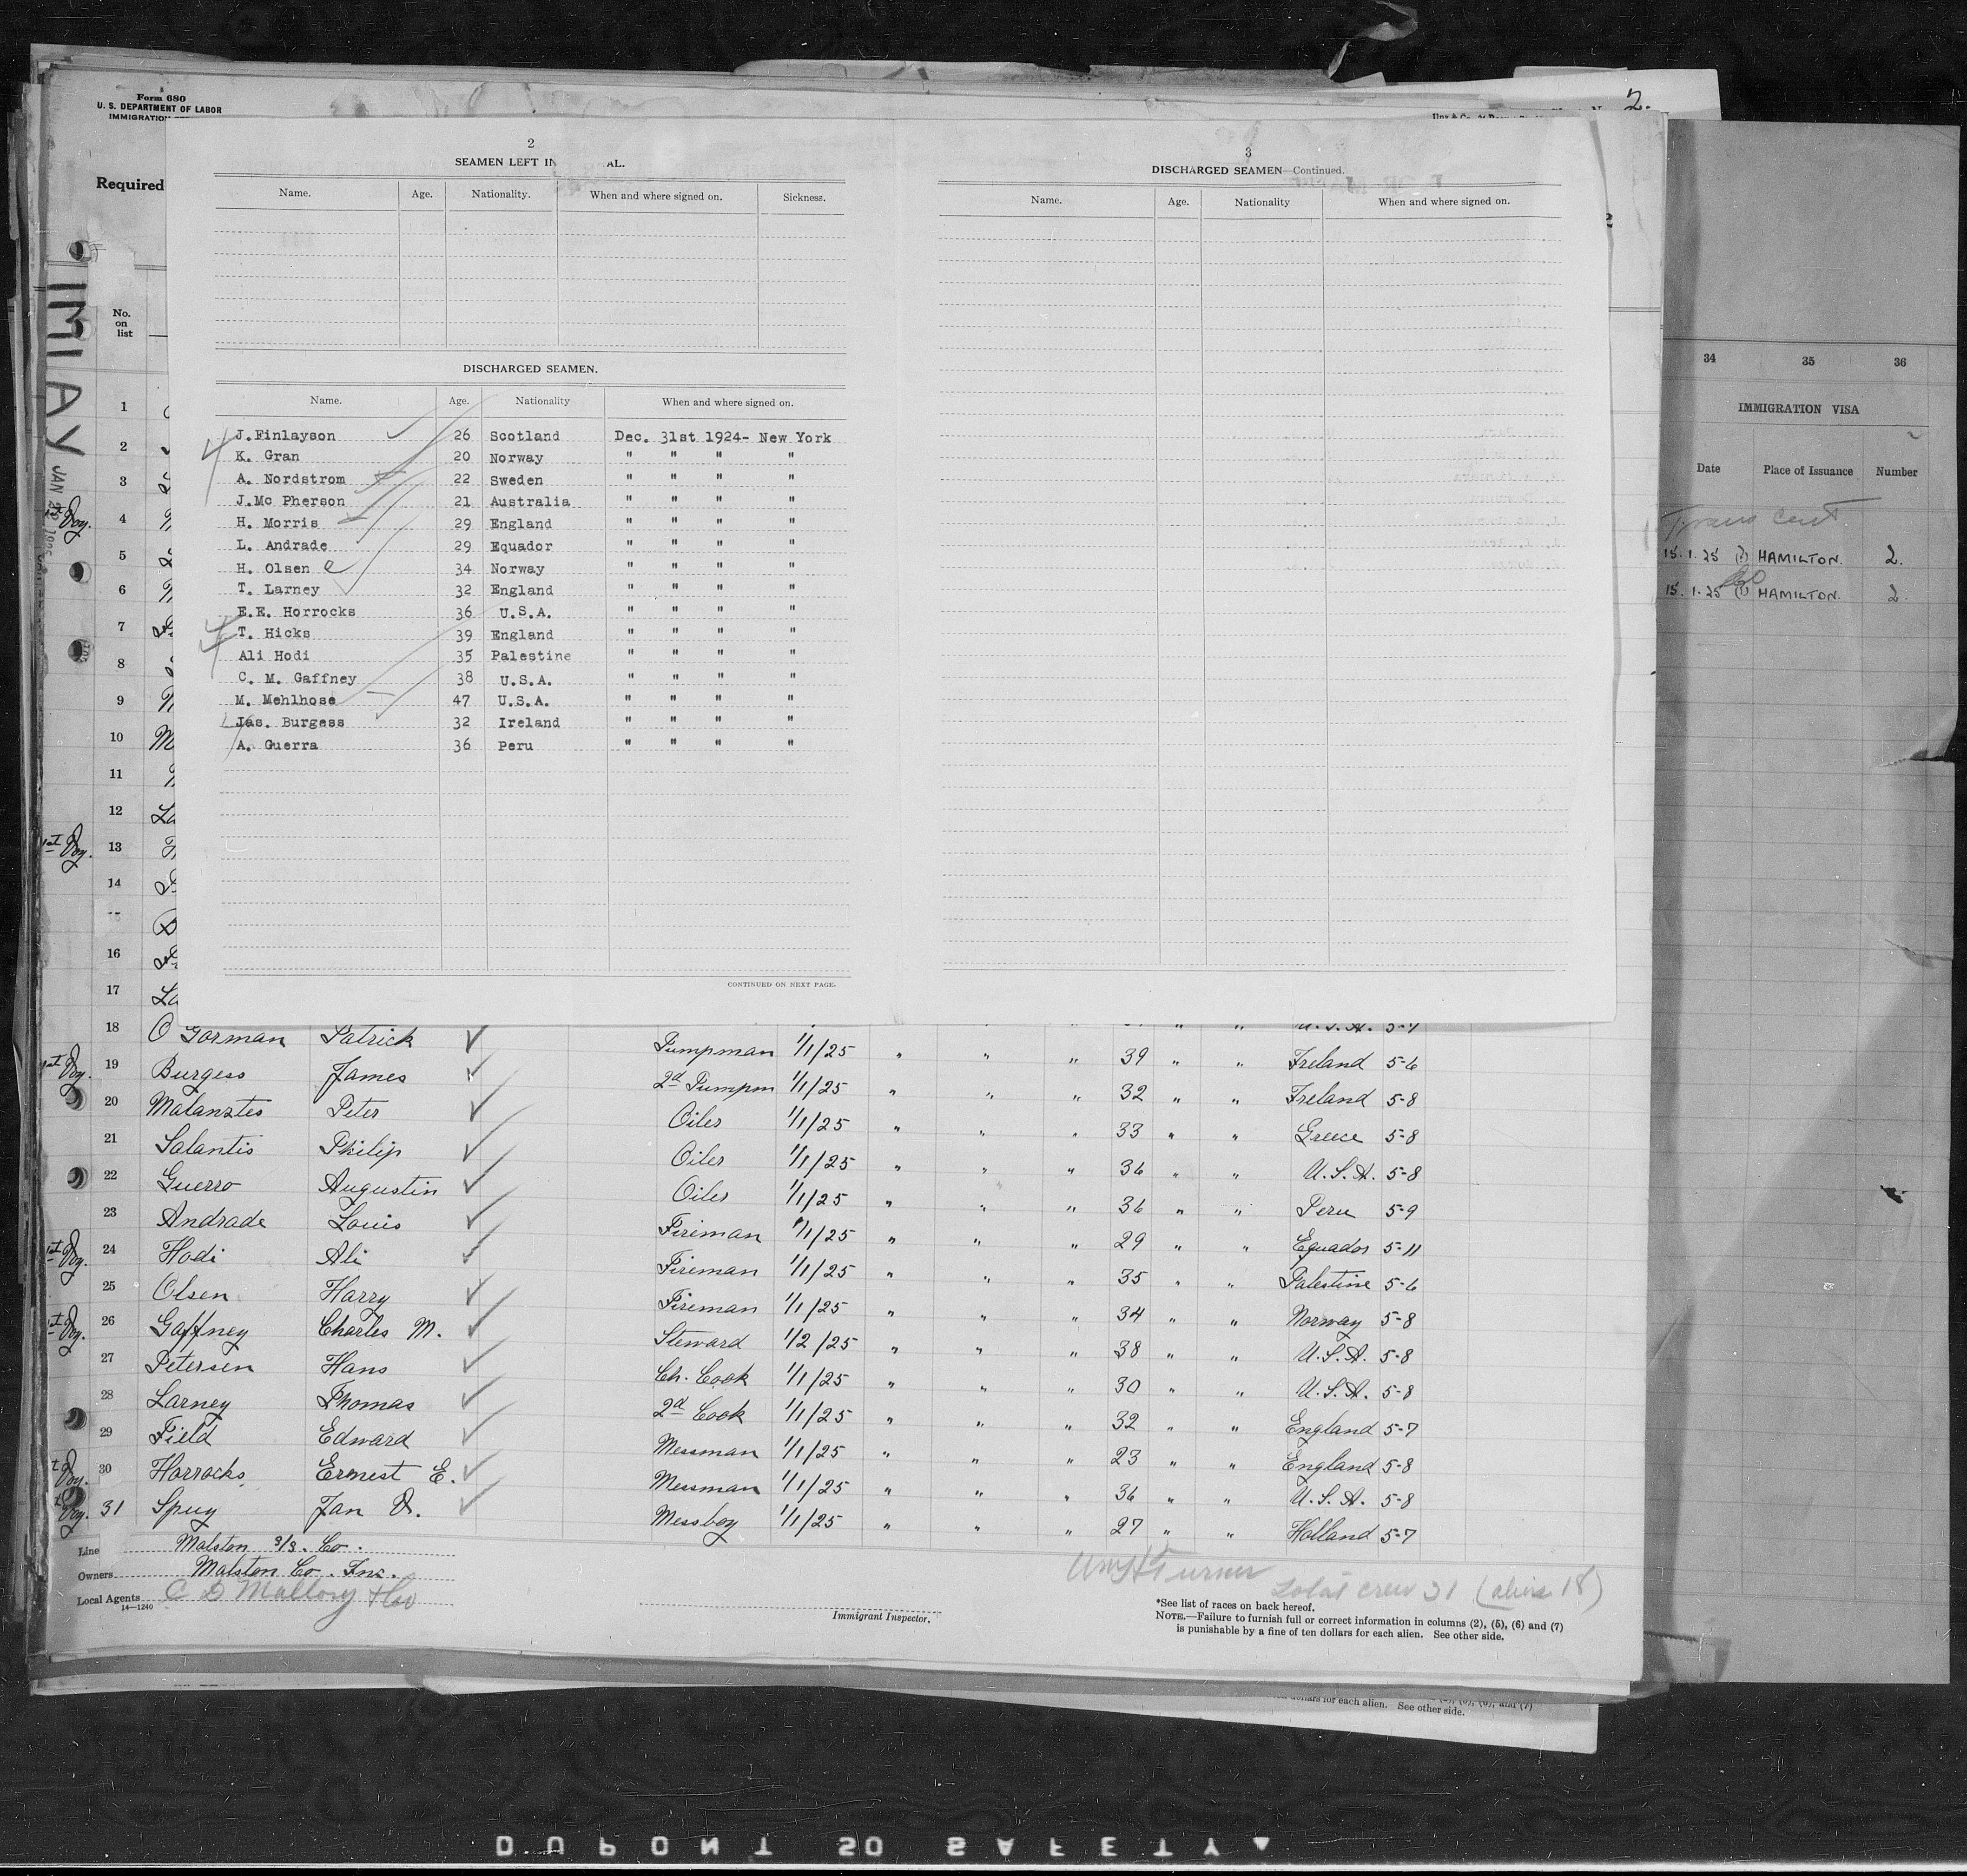 Form 680
U. S. DEPARTMENT OF LABOR
IMMIGRATION
2.
Required
IMLAY
JAN
No.
on
list
2
SEAMEN LEFT IN AL.
Name. Age. Nationality. When and where signed on. Sickness.
DISCHARGED SEAMEN.
Name. Age. Nationality When and where signed on.
J.Finlayson 26 Scotland Dec. 31st 1924- New York
K. Gran 20 Norway " " " "
A. Nordstrom 22 Sweden " " " "
J.Mc Pherson 21 Australia " " " "
H. Morris 29 England " " " "
L. Andrade 29 Equador " " " "
H. Olsen 34 Norway " " " "
T. Larney 32 England " " " "
E.E. Horrocks 36 U.S.A. " " " "
T. Hicks 39 England " " " "
Ali Hodi 35 Palestine " " " "
C. M. Gaffney 38 U.S.A. " " " "
M. Mehlhose 47 U.S.A. " " " "
Jas. Burgess 32 Ireland " " " "
A. Guerra 36 Peru " " " "
CONTINUED ON NEXT PAGE.
3
DISCHARGED SEAMEN—Continued.
Name. Age. Nationality When and where signed on.
34 35 36
IMMIGRATION VISA
Date Place of Issuance Number
Trans Cert
15.1.25 HAMILTON. 2.
15.1.25 HAMILTON. 2.
1
2
3
1st Voy. 4
5
6
7
8
9
10
11
12
1st Voy. 13
14
15
16
17
U.S.A. 5-7
18 O'Gorman Patrick ✓ Pumpman 1/1/25 " " " 39 " " Ireland 5-6
1st Voy. 19 Burgess James ✓ 2d Pumpm 1/1/25 " " " 32 " " Ireland 5-8
20 Matanztes Peter ✓ Oiler 1/1/25 " " " 33 " " Greece 5-8
21 Salantis Philip ✓ Oiler 1/1/25 " " " 36 " " U.S.A. 5-8
22 Guerro Augustin ✓ Oiler 1/1/25 " " " 36 " " Peru 5-9
23 Andrade Louis ✓ Fireman 1/1/25 " " " 29 " " Equador 5-11
1st Voy. 24 Hodi Ali ✓ Fireman 1/1/25 " " " 35 " " Palestine 5-6
25 Olsen Harry ✓ Fireman 1/1/25 " " " 34 " " Norway 5-8
1st Voy. 26 Gaffney Charles M. ✓ Steward 1/2/25 " " " 38 " " U.S.A. 5-8
27 Petersen Hans ✓ Ch. Cook 1/1/25 " " " 30 " " U.S.A. 5-8
28 Larney Thomas ✓ 2d Cook 1/1/25 " " " 32 " " England 5-7
29 Field Edward ✓ Messman 1/1/25 " " " 23 " " England 5-8
Voy. 30 Horrocks Ernest E. ✓ Messman 1/1/25 " " " 36 " " U.S.A. 5-8
Voy. 31 Spuy Jan D. ✓ Messboy 1/1/25 " " " 27 " " Holland 5-7
Line Malston S/S. Co.
Owners Malston Co. Inc.
Local Agents C D Mallory & Co
14—1240
Wm H Turner
Total crew 31 (aliens 18)
Immigrant Inspector.
*See list of races on back hereof.
NOTE.—Failure to furnish full or correct information in columns (2), (5), (6) and (7)
is punishable by a fine of ten dollars for each alien. See other side.
dollars for each alien. See other side.
DUPONT SO SAFETY